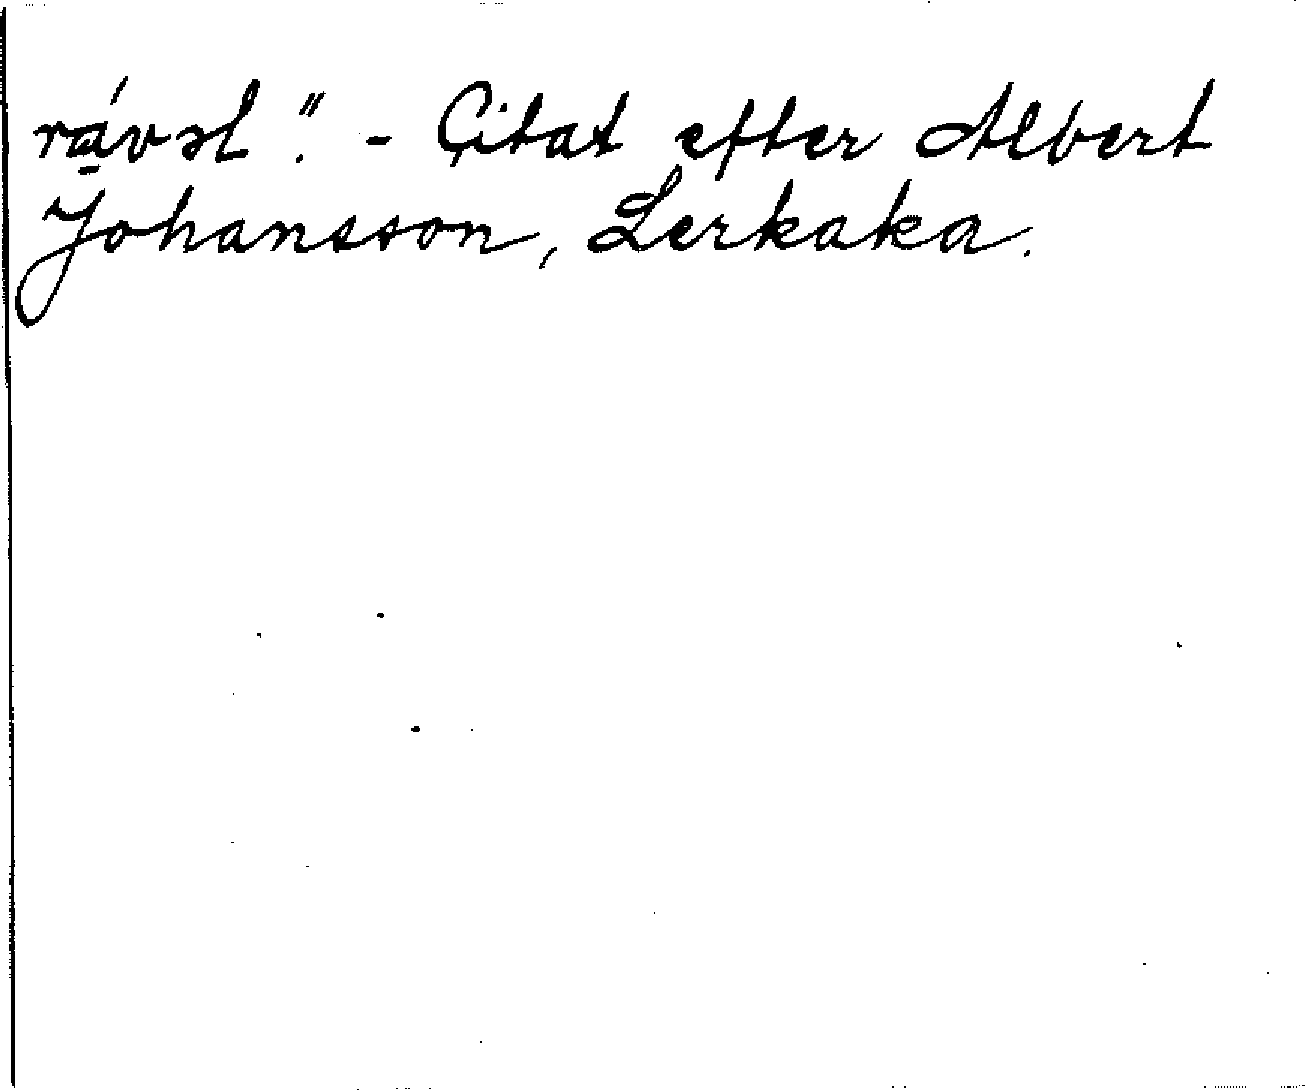 rávəl." - Citat efter Albert
Johansson, Lerkaka.